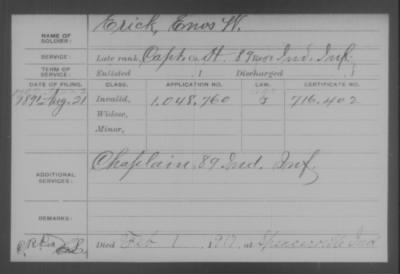 NAME OF SOLDIER: Erick, Enos W.
SERVICE: Late rank, Capt. Co. H. 89 Ind. Inf.
TERM OF SERVICE: Enlisted , 1 Discharged , 1
DATE OF FILING. CLASS. APPLICATION NO. LAW. CERTIFICATE NO.
1891 Aug. 21 Invalid, 1.048.760 716.402
Widow,
Minor,
ADDITIONAL SERVICES: Chaplain 89 Ind. Inf.
REMARKS:
Died Feb 1, 1917, at Spencerville Ind